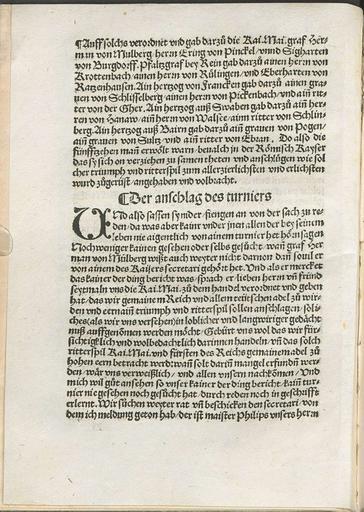 ¶Auff solchs verordnet vnd gab darzů die Kai. Mai. graf Her-
man von Mülberg. herm Ering von Pinckel/ vnnd Sigharten
von Burgdorff. Pfaltzgraf bey Rein gab darzů ainen herm von
Krottenbach/ ainen herm von Rülingen/ vnd Eberharten von
Ratzenhausen. Ain hertzog von Francken gab darzů ainen gra-
uen von Schlüsselberg/ ainen herm von Pickenbach/ vnd ain rit-
ter von der Ther. Ain hertzog auß Swaben gab darzů ain her-
ren von Hanaw/ ain herm von Walsee/ ainn ritter von Schlin-
berg. Ain hertzog auß Bairn gab darzů ain grauen von Pogen/
ain grauen von Sultz/ vnd ain ritter von Ebran. Do also die
fünffzehen man erwölt warn/ benalch in der Römisch Kayser
das sy sich on verziehen zu samen theten vnd anschlügen wie sol
cher triumph vnd ritterspil zum allerzierlichsten vnd erlichsten
wurd zůgericht/ angehaben vnd volbracht.
¶Der anschlag des turniers
VNd also sassen sy nider/ fiengen an von der sach zu re-
den/ da was aber kainr vnder jnen allen der bey seinem
leben nie aigentlich von ainem turnier het hörn sagen
Noch weniger kainen gesehen oder selbs gesůcht/ wan graf Her
man von Mülberg wißt auch weyter nicht darnon dann soul er
von ainem des Kaisers secretari gehört het. Vnd als er mercket
das kainer der ding bericht was/ sprach er lieben herm vn fründ
seytmaln vns die Kai. Mai. zu dem handel verordnet vnd geben
hat/ das wir gemainem Reich vnd allem teütschen adel zu wir-
den vnd eern ain triumph vnd ritterspil sollen anschlagen/ soli-
ches (als wir vns versehen) in loblicher vnd langwiriger gedächt
nuß auffgenomen werden möcht. Gebürt vns wol das wir für-
sichtigklich vnd wolbedachtlich darinnen handeln/ vn das solch
ritterspil Kai. Mai. vnd fürsten des Reichs gemainem adel zů
hohen eern betracht werd: wan solt darin mangel erfunden wer-
den/ wär vns verweißlich/ vnd allen vnsern nachkömen/ Vnd
mich wil gůt ansehen so vnser kainer der ding bericht/ kain tur-
nier nie gesehen noch gesücht hat/ durch reden noch in geschrifft
erlernt. Wir süchen weyter rat/ vn beschicken den secretari/ von
dem ich meldung geton hab/ der ist maister Philips vnsers herm